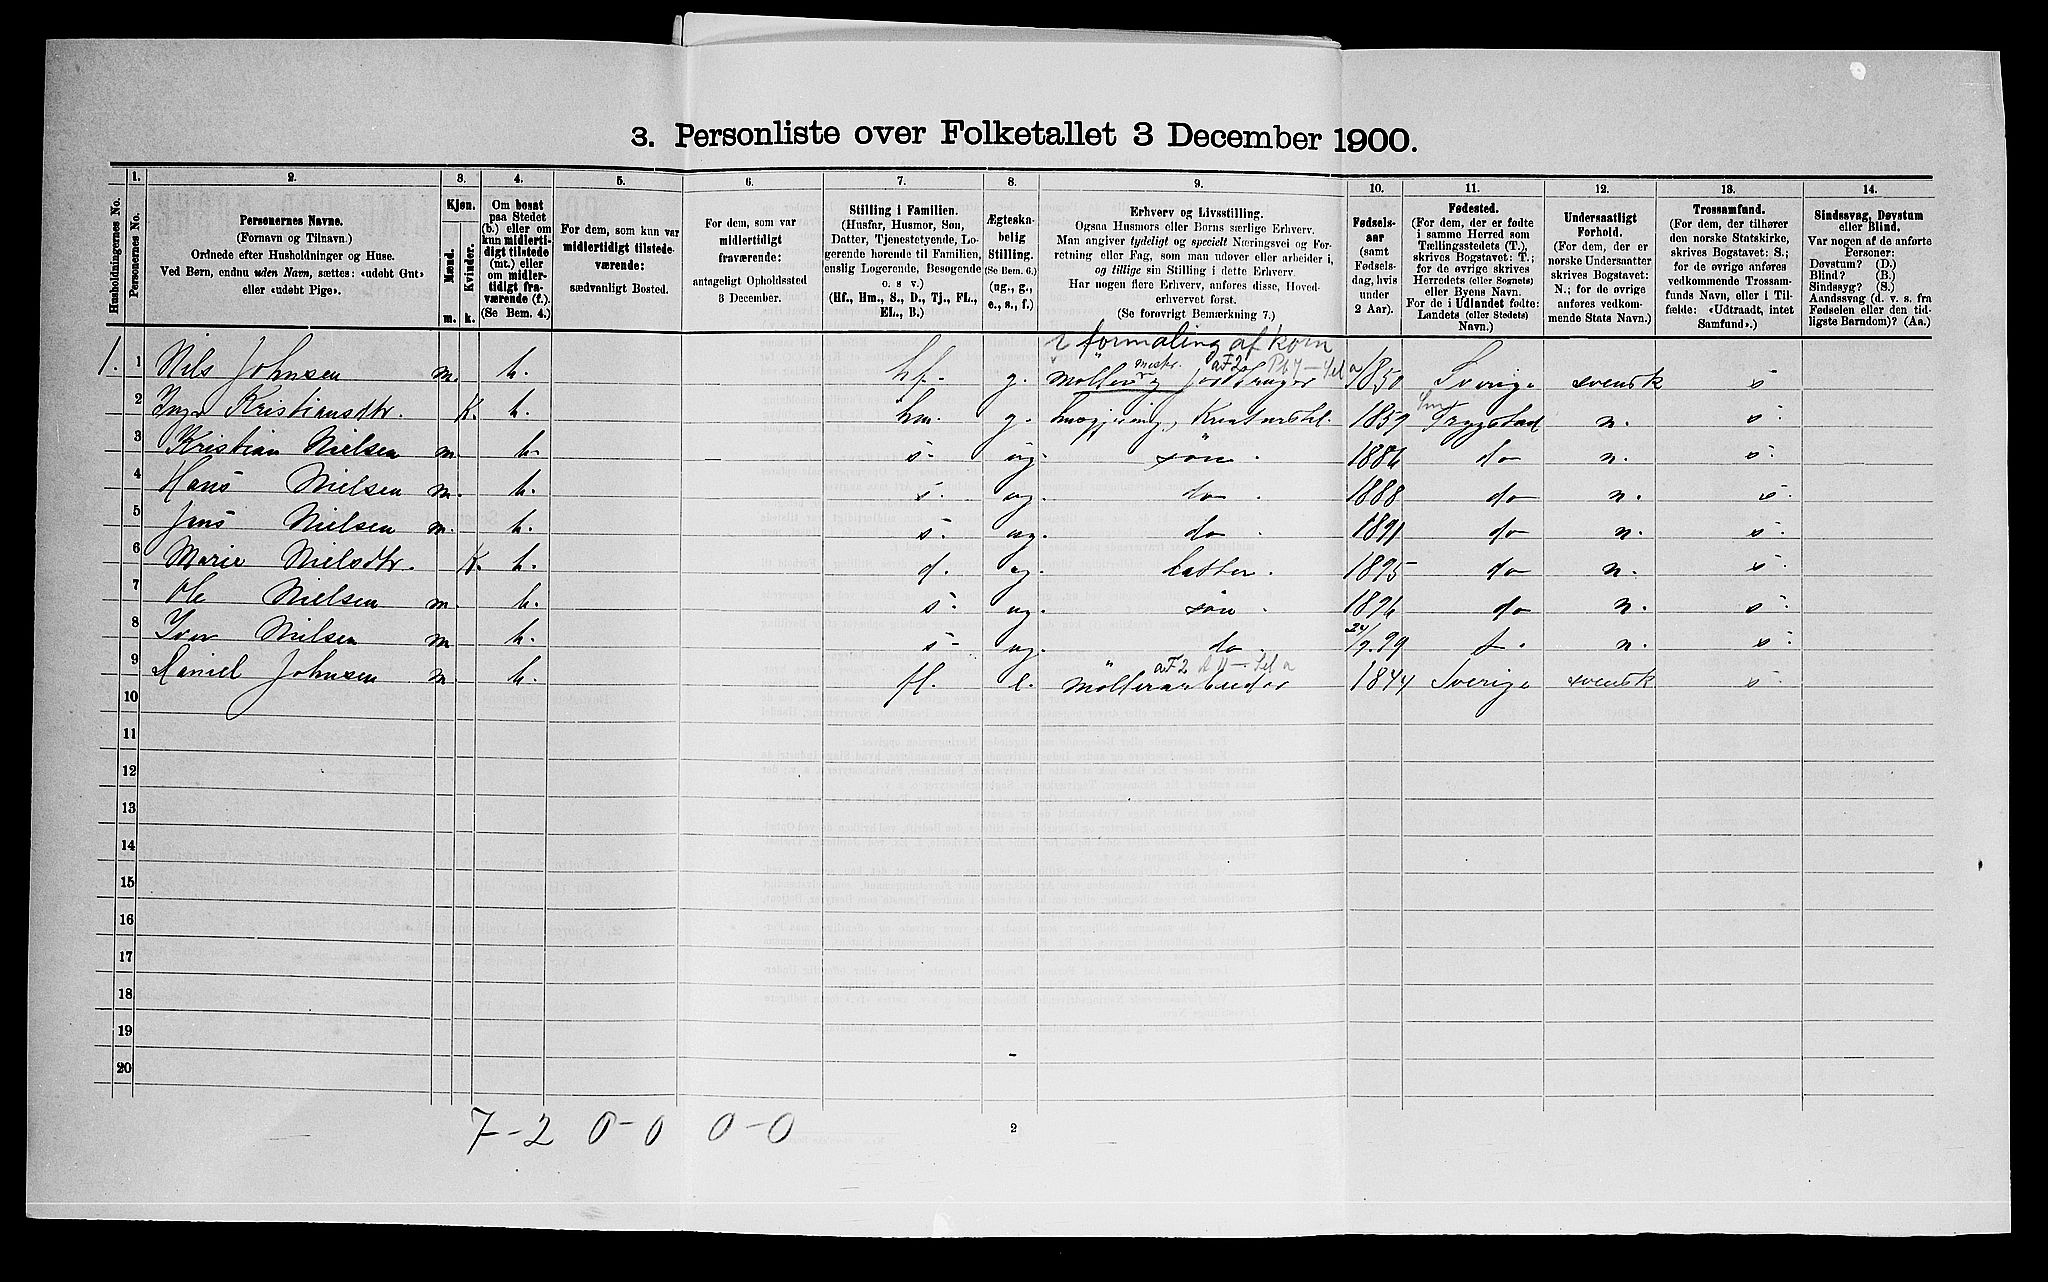 3. Personliste over Folketallet 3 December 1900.
1. 2. 3. 4. 5. 6. 7. 8. 9. 10. 11. 12. 13. 14.
Husholdningernes No.
Personernes No.
Personernes Navne.
(Fornavn og Tilnavn.)
Ordnede efter Husholdninger og Huse.
Ved Børn, endnu uden Navn, sættes: «udøbt Gut»
eller «udøbt Pige».
Kjøn.
Mænd.
Kvinder.
m. k.
Om bosat
paa Stedet
(b.) eller om
kun midlerti-
digt tilstede
(mt.) eller
om midler-
tidigt fra-
værende (f.).
(Se Bem. 4.)
For dem, som kun var
midlertidigt tilstede-
værende:
sædvanligt Bosted.
For dem, som var
midlertidigt
fraværende:
antageligt Opholdssted
3 December.
Stilling i Familien.
(Husfar, Husmor, Søn,
Datter, Tjenestetyende, Lo-
gerende hørende til Familien,
enslig Logerende, Besøgende
o. s. v.)
(Hf., Hm., S., D., Tj., FL.,
EL., B.)
Ægteska-
belig
Stilling.
(Se Bem. 6.)
(ug., g.,
e., s., f.)
Erhverv og Livsstilling.
Ogsaa Husmors eller Børns særlige Erhverv.
Man angiver tydeligt og specielt Næringsvei og For-
retning eller Fag, som man udøver eller arbeider i,
og tillige sin Stilling i dette Erhverv.
Har nogen flere Erhverv, anføres disse, Hoved-
erhvervet først.
(Se forøvrigt Bemærkning 7.)
Fødsels-
aar
(samt
Fødsels-
dag, hvis
under
2 Aar).
Fødested.
(For dem, der er fødte
i samme Herred som
Tællingsstedets (T.),
skrives Bogstavet: T.;
for de øvrige skrives
Herredets (eller Sognets)
eller Byens Navn.
For de i Udlandet fødte:
Landets (eller Stedets)
Navn.)
Undersaatligt
Forhold.
(For dem, der er
norske Undersaatter
skrives Bogstavet:
N.; for de øvrige
anføres vedkom-
mende Stats Navn.)
Trossamfund.
(For dem, der tilhører
den norske Statskirke,
skrives Bogstavet: S.;
for de øvrige anføres
vedkommende Trossam-
funds Navn, eller i Til-
fælde: «Udtraadt, intet
Samfund».)
Sindssvag, Døvstum
eller Blind.
Var nogen af de anførte
Personer:
Døvstum? (D.)
Blind? (B.)
Sindssyg? (S.)
Aandssvag (d. v. s. fra
Fødselen eller den tid-
ligste Barndom)? (Aa.)
i formaling af korn
1. 1 Nils Johnsen m. b. hf. g. Møller og jordbruger 1850 Sverige svensk s
2 Inga Kristiansdtr. K. b. hm. g. 1859 Trygstad n. s
3 Kristian Nielsen m. b. s. ug. søn. 1886 do n. s.
4 Hans Nielsen m. b. s. ug. do. 1888 do n. s.
5 Jens Nielsen m. b. s. ug. do. 1891 do n. s.
6 Marie Nielsdtr. K. b. d. ug. datter. 1895 do n. s.
7 Ole Nielsen m. b. s. ug. søn. 1896 do n. s.
8 Iver Nielsen m. b. s. ug. do. 99 n. s.
9 Daniel Johnsen m. b. fl. e. Møllerarbeider 1844 Sverige svensk s.
10
11
12
13
14
15
16
17
18
19
20
7-2 0-0 0-0
2